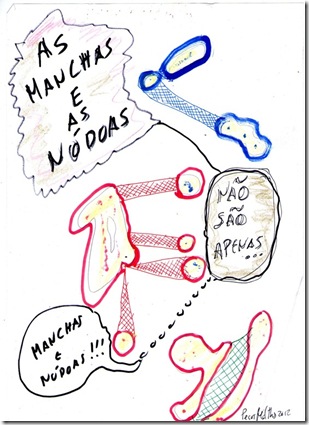 AS
MANCHAS
E
AS
NÓDOAS
NÃO
SÃO
APENAS...
MANCHAS
E
NÓDOAS!!!